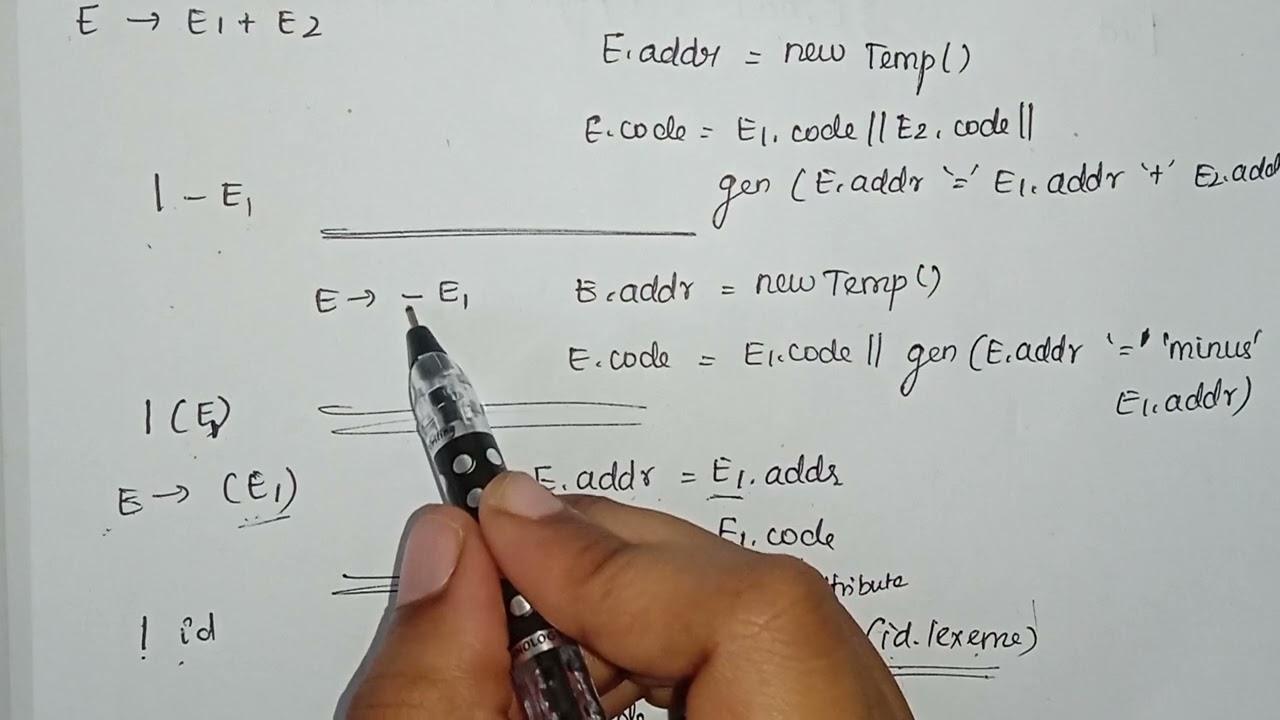 E → E1 + E2
E.addr = new Temp()
E.code = E1.code || E2.code ||
gen (E.addr '=' E1.addr '+' E2.add
| - E1
E → - E1
E.addr = new Temp()
E.code = E1.code || gen (E.addr '=' 'minus'
E1.addr)
| (E)
E → (E1)
E.addr = E1.addr
E1.code
tribute
(id.lexeme)
! id